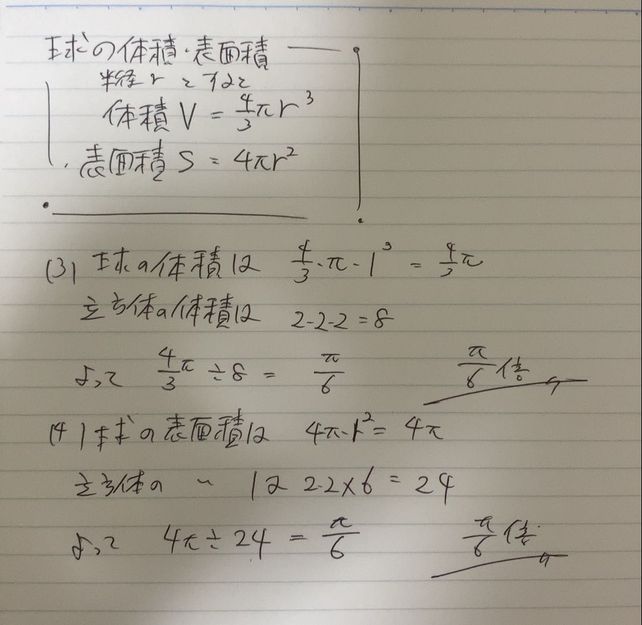 球の体積・表面積
半径rとすると
体積 V = 4/3 πr³
表面積 S = 4πr²
(3) 球の体積は 4/3・π・1³ = 4/3 π
立方体の体積は 2・2・2 = 8
よって 4/3 π ÷ 8 = π/6 π/6 倍
(4) 球の表面積は 4π・1² = 4π
立方体の 〃 は 2・2×6 = 24
よって 4π ÷ 24 = π/6 π/6 倍